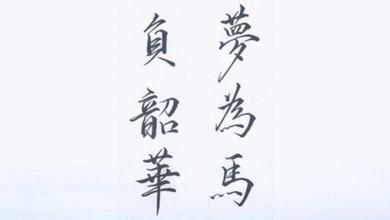 夢為馬
負韶華